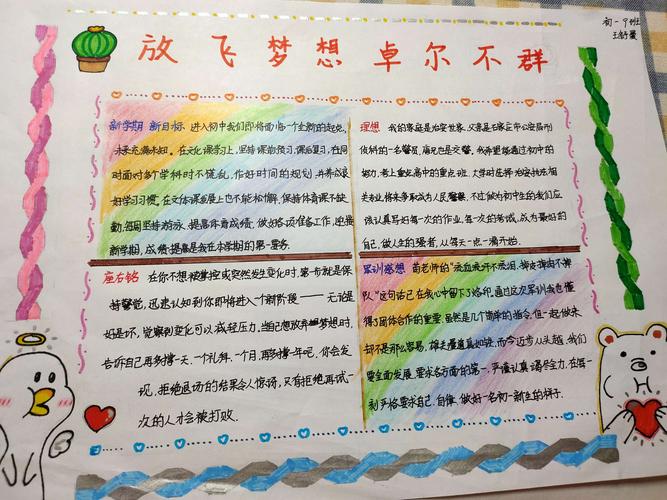 放飞梦想 卓尔不群
初一9班
新学期 新目标 进入初中我们即将面临一个全新的起点,
未来充满未知。在文化课学习上,坚持课前预习,课后复习,在同
时面对多个学科时不慌乱,作好时间的规划,并养成良
好学习习惯。在文体课业展上也不能松懈,保持体育课不缺
勤,每周坚持游泳,提高体育成绩,做好各项准备工作,迎接
新学期,成绩提高是我在本学期的第一要务
理想 我的家庭是治安世家,父亲是石家庄市公安局刑
侦科的一名警员,痛兄也是交警。我希望能通过初中的
努力,考上重点高中的重点班,大学时选择治安执法相
关专业,将来争取成为人民警察,不过做为初中生的我们应
该认真写好每一次的作业,每一次的考试,成为最好的
自己,做人生的强者,从每天一点一滴开始。
座右铭 在你不想被掌控或突然发生变化时,第一步就是保
持警觉,迅速认知到你即将进入一个新阶段——无论是
好是坏,觉察到变化可以减轻压力,当想放弃梦想时,
告诉自己再多撑一天、一个礼拜、一个月,再多撑一年吧,你会发
现,拒绝退场的结果令人惊讶,只有拒绝再试一
次的人才会被打败.
军训感想 苗老师的"流血流汗不流泪,掉皮掉肉不掉
队"这句话已在我心中留下了烙印。通过这次军训我也懂
得了团体合作的重要,虽然是几个简单的指令,但一起做来
却不是那么容易,雄关漫道真如铁,而今迈步从头越,我们
要全面发展,要求各方面的第一,严谨认真,竭尽全力,在每一
刻严格要求自己,自律,做好一名初一新生的样子.